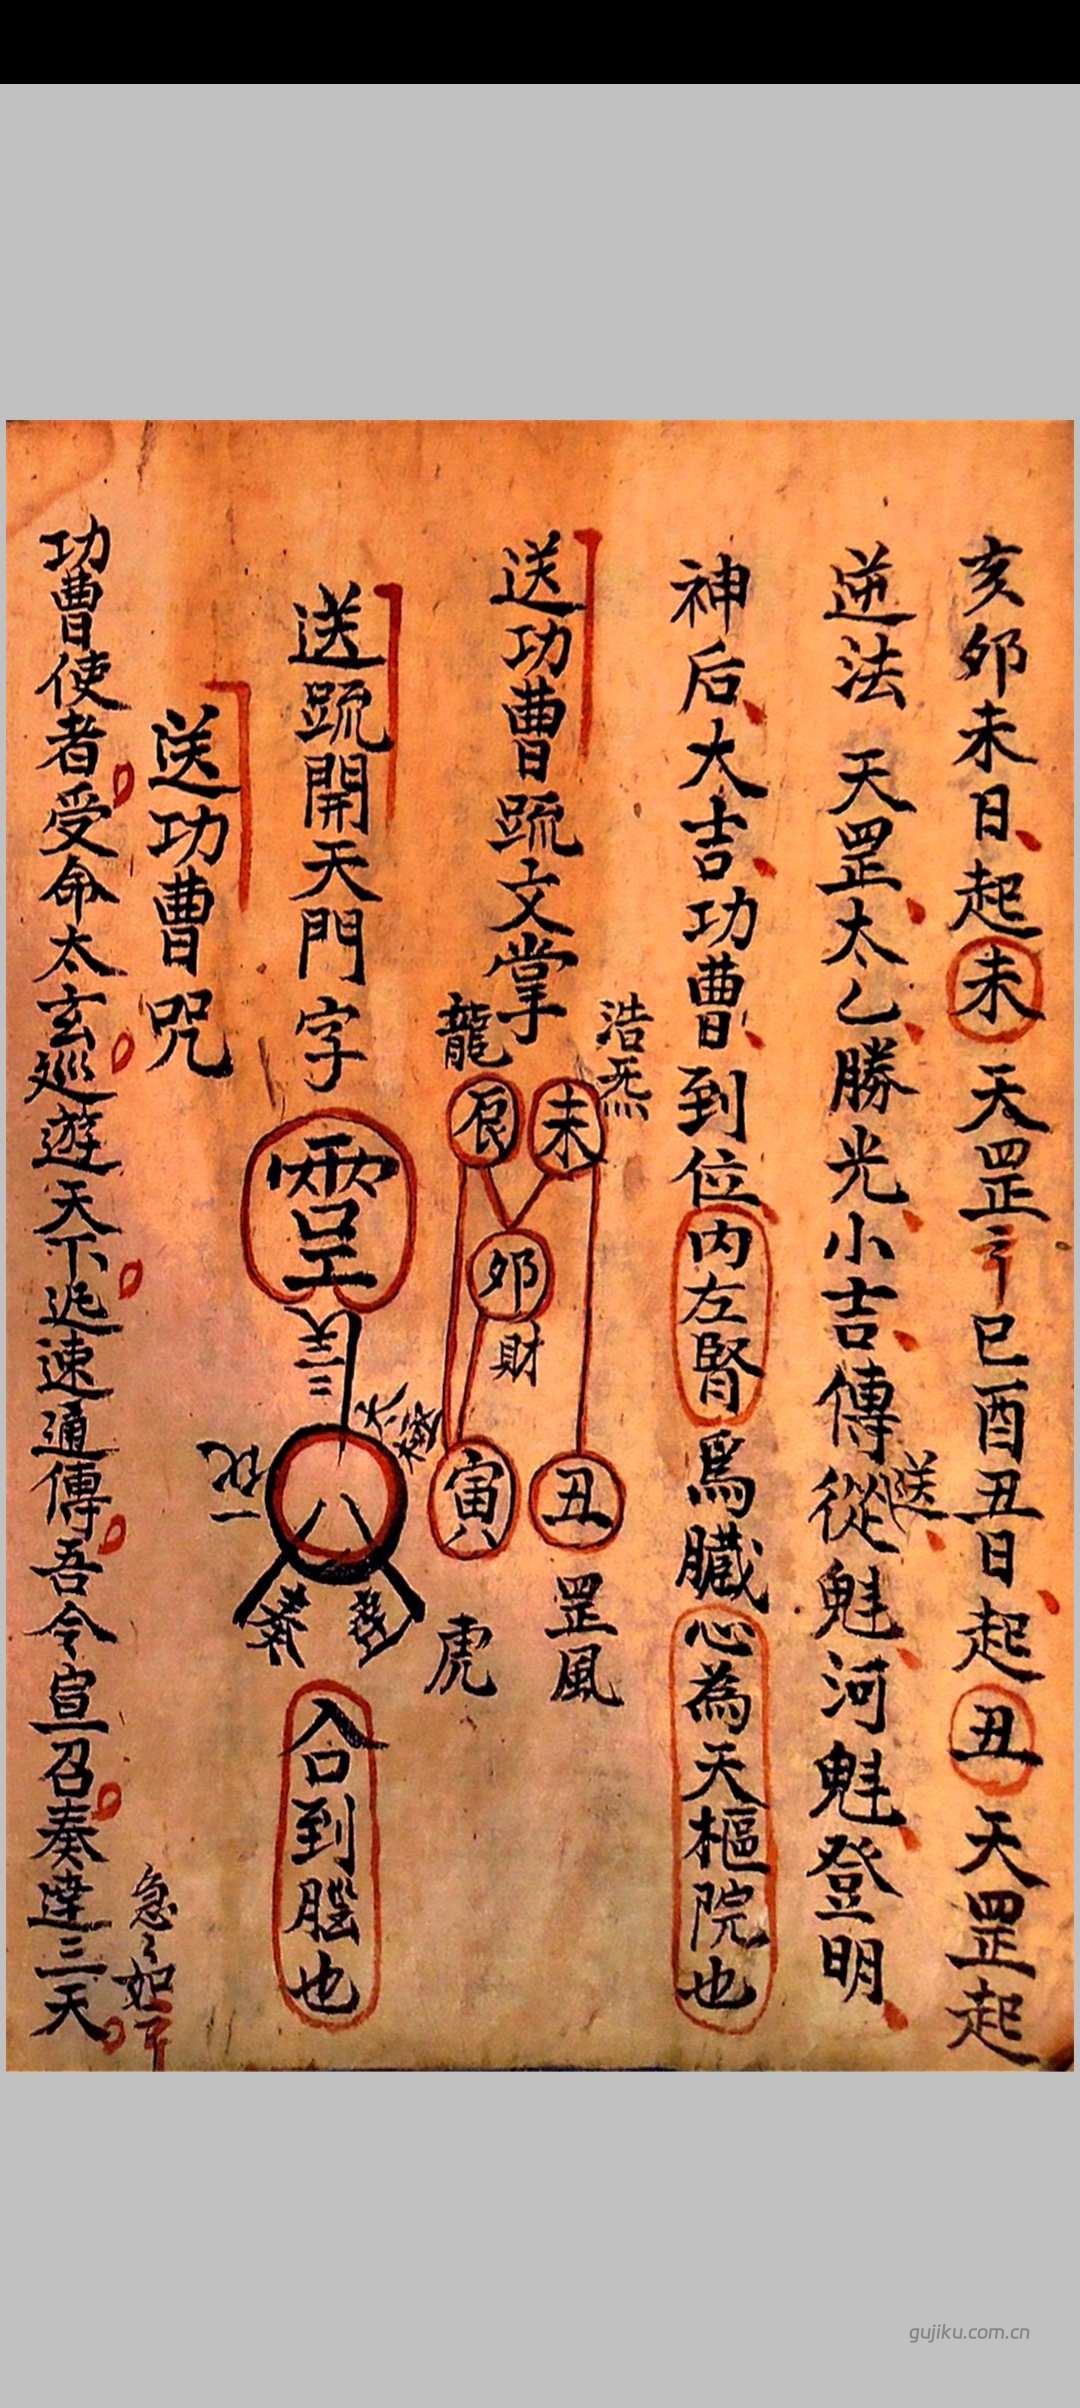 亥卯未日起未天罡 巳酉丑日起丑天罡起
逆法 天罡太乙勝光小吉傳送從魁河魁登明
神后大吉功曹到位内左腎爲臟心為天樞院也
送功曹䟽文掌
浩炁
未
龍
辰
卯
財
丑
罡風
寅
虎
送䟽開天門字
入口到腦也
送功曹咒
功曹使者受命太玄廵遊天下迅速通傳吾令宣召奏達三天
急々如
gujiku.com.cn